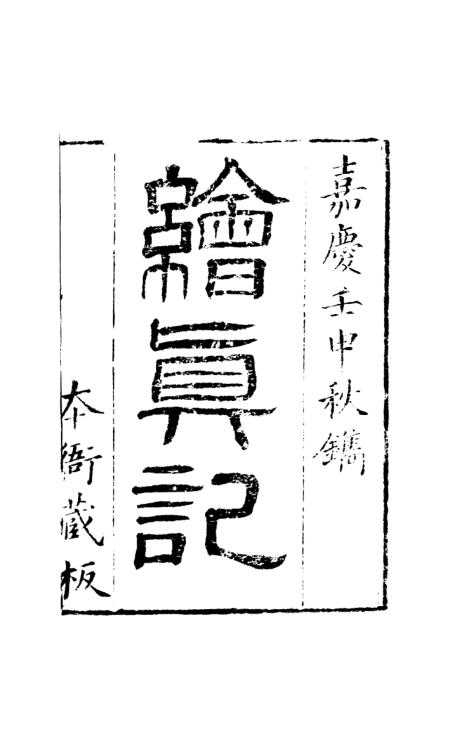 嘉慶壬申秋鐫
繪眞記
本衙藏板